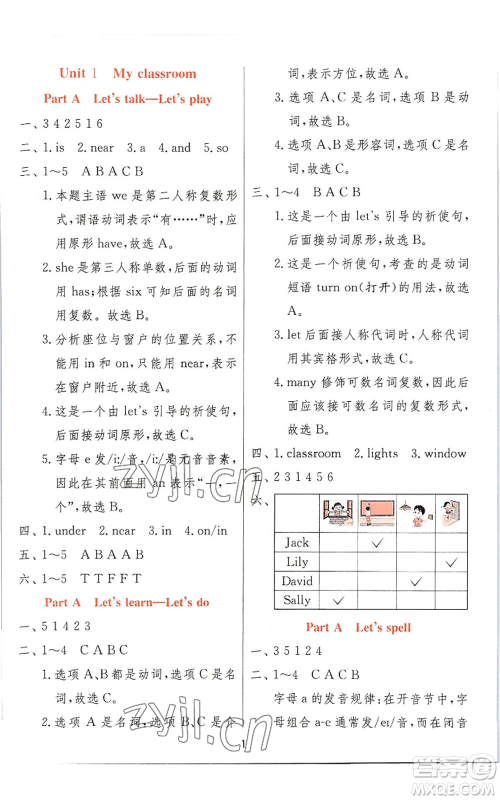 Unit 1 My classroom
Part A Let's talk—Let's play
一、3 4 2 5 1 6
二、1. is 2. near 3. a 4. and 5. so
三、1～5 A B A C B
1. 本题主语 we 是第二人称复数形
式，谓语动词表示“有……”时，应
用原形 have，故选 A。
2. she 是第三人称单数，后面的动词
用 has；根据 six 可知后面的名词
用复数。故选 B。
3. 分析座位与窗户的位置关系，不
能用 in 和 on，只能用 near，表示
在窗户附近，故选 A。
4. 这是一个由 let's 引导的祈使句，
后面接动词原形，故选 C。
5. 字母 e 发/iː/音，/iː/是元音音素，
因此在其前面用 an 表示“一，
一个”。故选 B。
四、1. under 2. near 3. in 4. on/in
五、1～5 A B A A B
六、1～5 T T F F T
Part A Let's learn—Let's do
一、5 1 4 2 3
二、1～4 C A B C
1. 选项 A、B 都是动词，选项 C 是名
词，故选 C。
2. 选项 A 是名词，选项 B、C 是介
词，表示方位，故选 A。
3. 选项 A、C 是名词，选项 B 是动
词，故选 B。
4. 选项 A、B 是形容词，选项 C 是名
词，故选 C。
三、1～4 B A C B
1. 这是一个由 let's 引导的祈使句，
后面接动词原形，故选 B。
2. 这是一个祈使句，考查的是动词
短语 turn on（打开）的用法，故
选 A。
3. let 后面接人称代词时，人称代词
用其宾格形式，故选 C。
4. many 修饰可数名词复数，因此后
面应接可数名词的复数形式，
故选 B。
四、1. classroom 2. lights 3. window
五、2 3 1 4 5 6
六、
Jack ✓
Lily ✓
David ✓
Sally ✓
Part A Let's spell
一、3 5 1 2 4
二、1～4 C A C B
字母 a 的发音规律：在开音节中，字
母组合 a-e 通常发/eɪ/音，而在闭音
1
zyjl.cn
zyjl.cn
答案圈
MXQE.COM